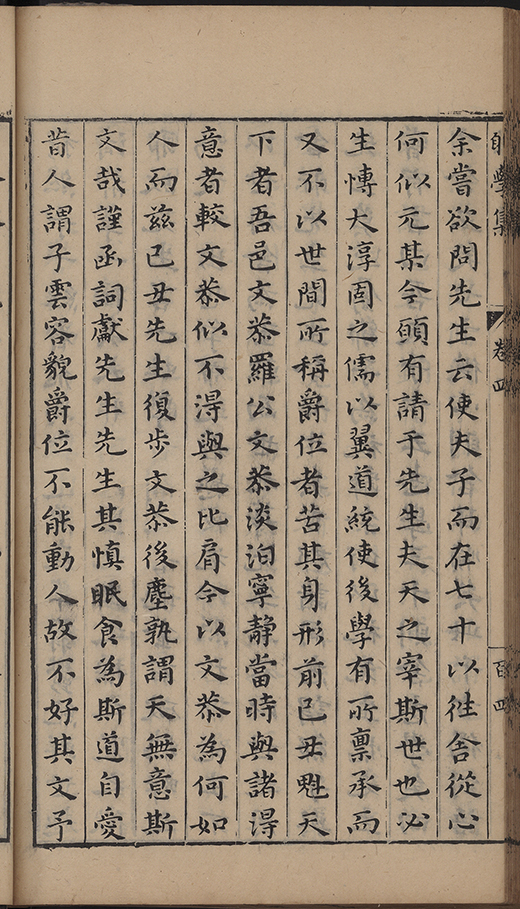 余嘗欲問先生云使夫子而在七十以徃舍從心
何似元某今願有請于先生夫天之宰斯世也必
生愽大淳固之儒以翼道統使後學有所稟承而
又不以世間所稱爵位者苦其身形前已丑魁天
下者吾邑文恭羅公文恭淡泊寧静當時與諸淂
意者較文恭似不淂與之比肩今以文恭為何如
人而茲已丑先生復步文恭後塵孰謂天無意斯
文哉謹函詞獻先生先生其慎眠食為斯道自愛
昔人謂子雲容貌爵位不能動人故不好其文予
學集
卷四
百四